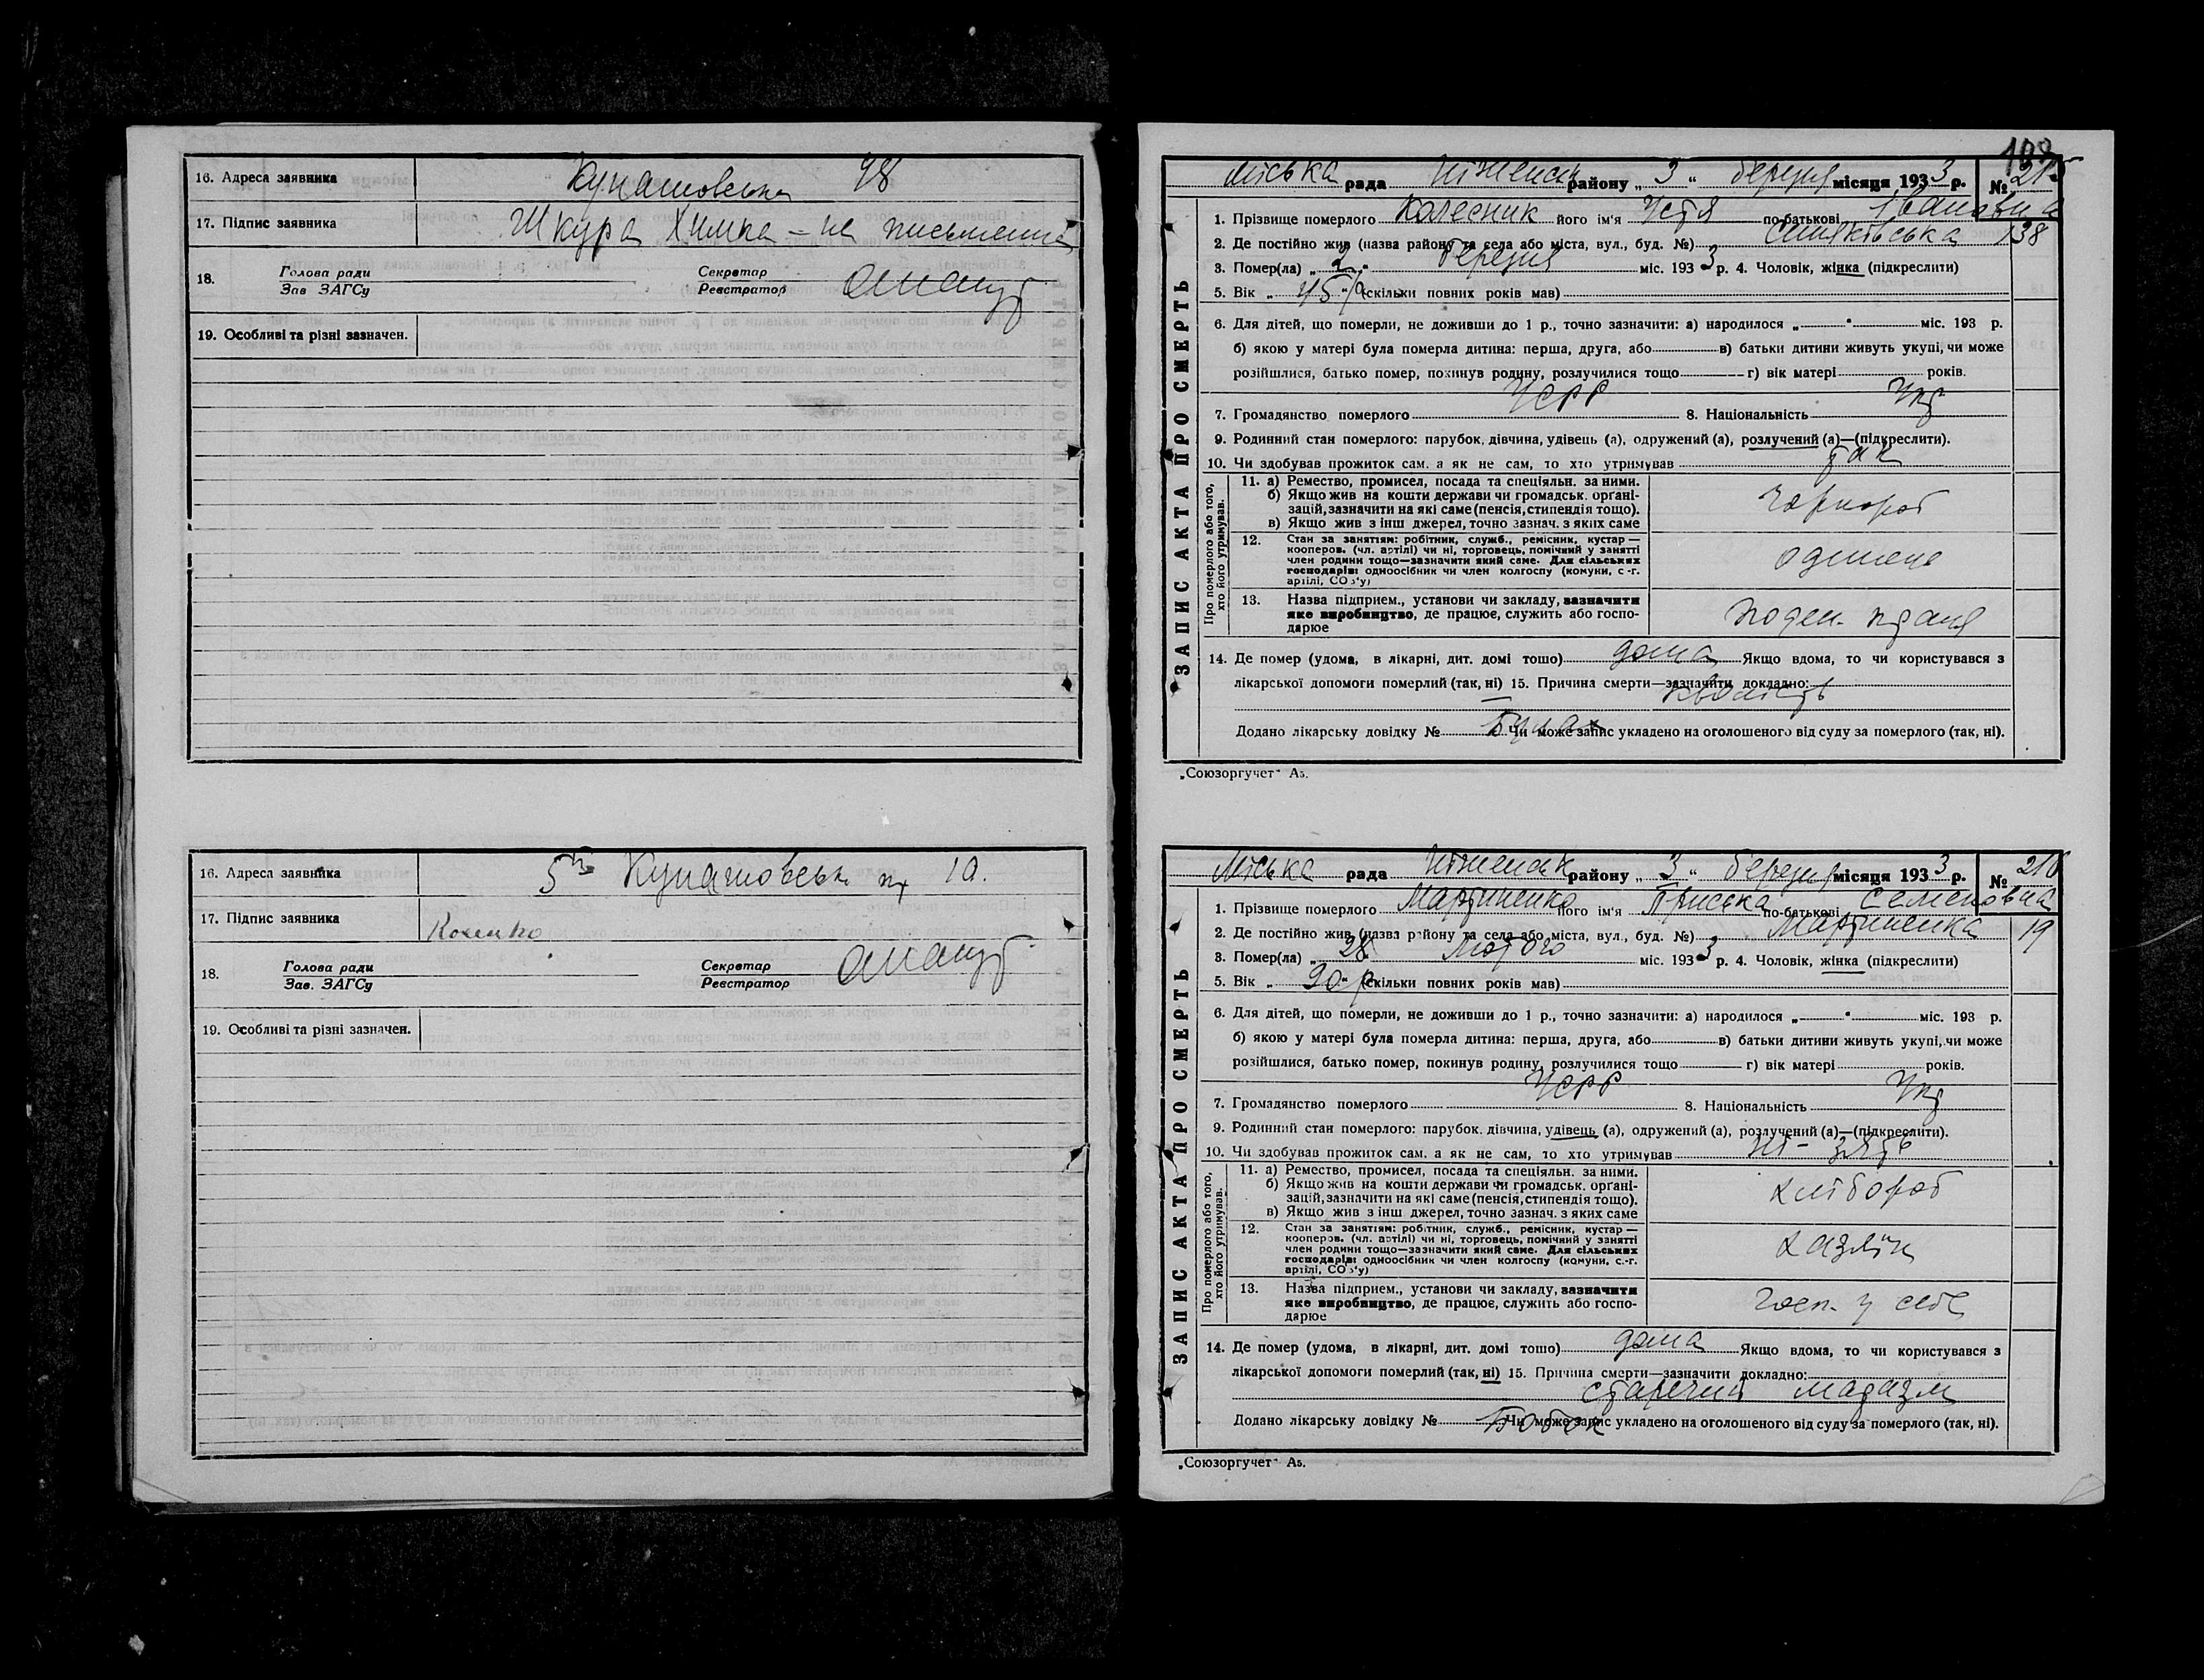 16. Адреса заявника Кунашовська 48
17. Підпис заявника Шкура Химка – не письменна
18. Голова ради
Зав ЗАГСу
Секретар
Реєстратор
19. Особливі та різні зазначен.
16. Адреса заявника Кунашовськ 10.
17. Підпис заявника
18. Голова ради
Зав. ЗАГСу
Секретар
Реєстратор
19. Особливі та різні зазначен.
ЗАПИС АКТА ПРО СМЕРТЬ
Міська рада Ніженськ району „ 3 “ березня місяця 1933 р. № 215
1. Прізвище померлого Колесник його ім'я Устя по-батькові Івановна
2. Де постійно жив (назва району та села або міста, вул., буд. №) Синяківська 138
3. Помер(ла) „ 2 “ березня міс. 1933 р. 4. Чоловік, жінка (підкреслити)
5. Вік „ 45 “ р (скільки повних років мав)
6. Для дітей, що померли, не доживши до 1 р., точно зазначити: а) народилося „ “ міс. 193 р.
б) якою у матері була померла дитина: перша, друга, або в) батьки дитини живуть укупі, чи може
розійшлися, батько помер, покинув родину, розлучилися тощо г) вік матері років.
7. Громадянство померлого УСРР 8. Національність Укр
9. Родинний стан померлого: парубок, дівчина, удівець (а), одружений (а), розлучений (а)—(підкреслити).
10. Чи здобував прожиток сам, а як не сам, то хто утримував так
Про померлого або того,
хто його утримував.
11. а) Ремество, промисел, посада та спеціяльн. за ними.
б) Якщо жив на кошти держави чи громадськ. орґані-
зацій, зазначити на які саме (пенсія, стипендія тощо).
в) Якщо жив з інш джерел, точно зазнач. з яких саме
чорнороб
12. Стан за заняттям: робітник, служб., ремісник, кустар —
кооперов. (чл. артілі) чи ні, торговець, помічний у занятті
член родини тощо—зазначити який саме. Для сільських
господарів: одноосібник чи член колгоспу (комуни, с.-г.
артілі, СОЗ'у)
13. Назва підприєм., установи чи закладу, зазначити
яке виробництво, де працює, служить або госпо-
дарює
поден. праця
14. Де помер (удома, в лікарні, дит. домі тощо) дома Якщо вдома, то чи користувався з
лікарської допомоги померлий (так, ні) 15. Причина смерти—зазначити докладно:
кволість
Додано лікарську довідку № Чи може запис укладено на оголошеного від суду за померлого (так, ні).
„Союзоргучет“ А5.
ЗАПИС АКТА ПРО СМЕРТЬ
Міська рада Ніженськ району „ 3 “ березня місяця 1933 р. № 216
1. Прізвище померлого Мартиненко його ім'я Приська по-батькові Семеновна
2. Де постійно жив (назва району та села або міста, вул., буд. №) Мартиненка 19
3. Помер(ла) „ 28 “ Лютого міс. 1933 р. 4. Чоловік, жінка (підкреслити)
5. Вік „ 90 “ р (скільки повних років мав)
6. Для дітей, що померли, не доживши до 1 р., точно зазначити: а) народилося „ “ міс. 193 р.
б) якою у матері була померла дитина: перша, друга, або в) батьки дитини живуть укупі, чи може
розійшлися, батько помер, покинув родину, розлучилися тощо г) вік матері років.
7. Громадянство померлого УСРР 8. Національність Укр
9. Родинний стан померлого: парубок, дівчина, удівець (а), одружений (а), розлучений (а)—(підкреслити).
10. Чи здобував прожиток сам, а як не сам, то хто утримував ні – зять
Про померлого або того,
хто його утримував.
11. а) Ремество, промисел, посада та спеціяльн. за ними.
б) Якщо жив на кошти держави чи громадськ. орґані-
зацій, зазначити на які саме (пенсія, стипендія тощо).
в) Якщо жив з інш джерел, точно зазнач. з яких саме
хлібороб
12. Стан за заняттям: робітник, служб., ремісник, кустар —
кооперов. (чл. артілі) чи ні, торговець, помічний у занятті
член родини тощо—зазначити який саме. Для сільських
господарів: одноосібник чи член колгоспу (комуни, с.-г.
артілі, СОЗ'у)
хазяїн
13. Назва підприєм., установи чи закладу, зазначити
яке виробництво, де працює, служить або госпо-
дарює
госп. у себе
14. Де помер (удома, в лікарні, дит. домі тощо) дома Якщо вдома, то чи користувався з
лікарської допомоги померлий (так, ні) 15. Причина смерти—зазначити докладно:
старечий маразм
Додано лікарську довідку № Чи може запис укладено на оголошеного від суду за померлого (так, ні).
„Союзоргучет“ А5.